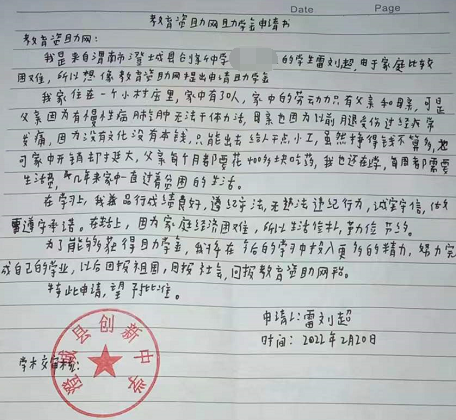 Date Page
教育资助网助学金申请书
教育资助网：
我是来自渭南市澄城县创新中学 的学生雷刘超，由于家庭比较
困难，所以想像教育资助网提出申请助学金
我家住在一个小村庄里，家中有30人，家中的劳动力只有父亲和母亲，可是
父亲因为有慢性病肺结肿无法干体力活，母亲也因为以前月退受伤过经常
发痛，因为没有文化没有本钱，只能出去给人干点小工，虽然挣得钱不算多，她
可家中开销却十挺大，父亲每个月都要花400多块吃药，我也还在学，每周都需要
生活费，几年来家中一直过着贫困的生活。
在学习上，我养品行成绩良好，遵纪守法，无违法违纪行为，诚实守信，
重遵守承诺。在生活上，因为家庭经济困难，所以生活俭朴，勤俭节约。
为了能够获得助学金，我将在今后的学习中投入更多的精力，努力完
成自己的学业，以后回报祖国，回报社会，回报教育资助网站。
特此申请，望予批准。
申请人：雷刘超
时间：2022年2月20日
学校审核：
澄城县创新中学